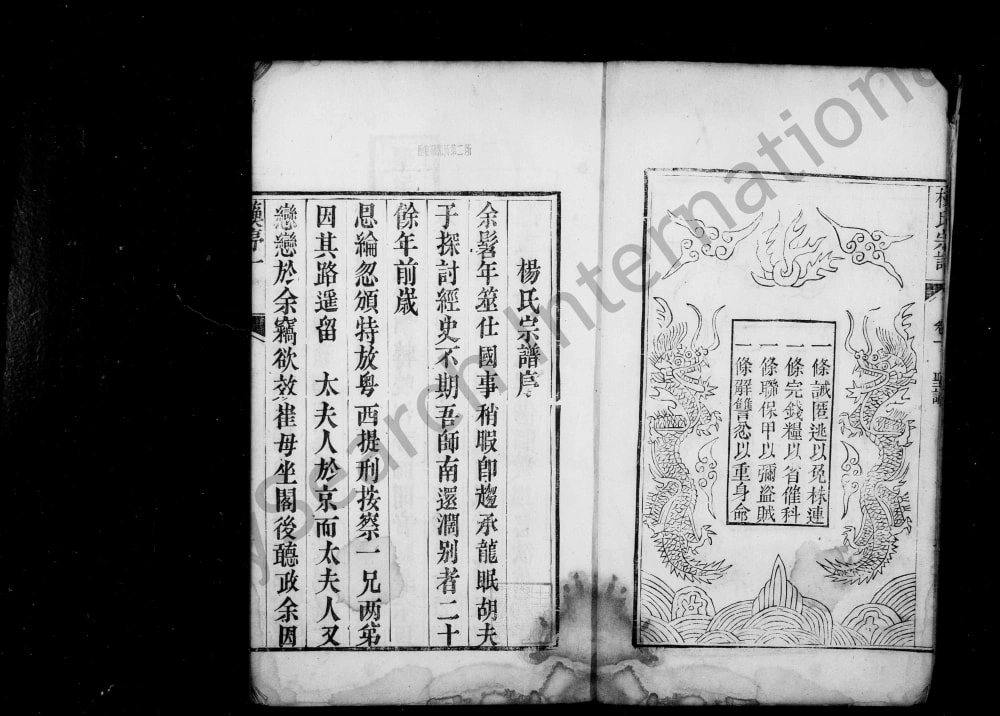 楊氏宗譜
卷一 聖諭
一條誡匿逃以免株連
一條完錢糧以省催科
一條聯保甲以彌盜賊
一條觧讐忿以重身命
楊氏宗譜序
余髫年筮仕國事稍暇卽趨承龍眠胡夫
子探討經史不期吾師南還濶别者二十
餘年前歲
恩綸忽頒特放粤西提刑按察一兄两苐
因其路遥留　太夫人於京而太夫人又
戀戀於余竊欲效崔母坐閣後聽政余因
MySearch International